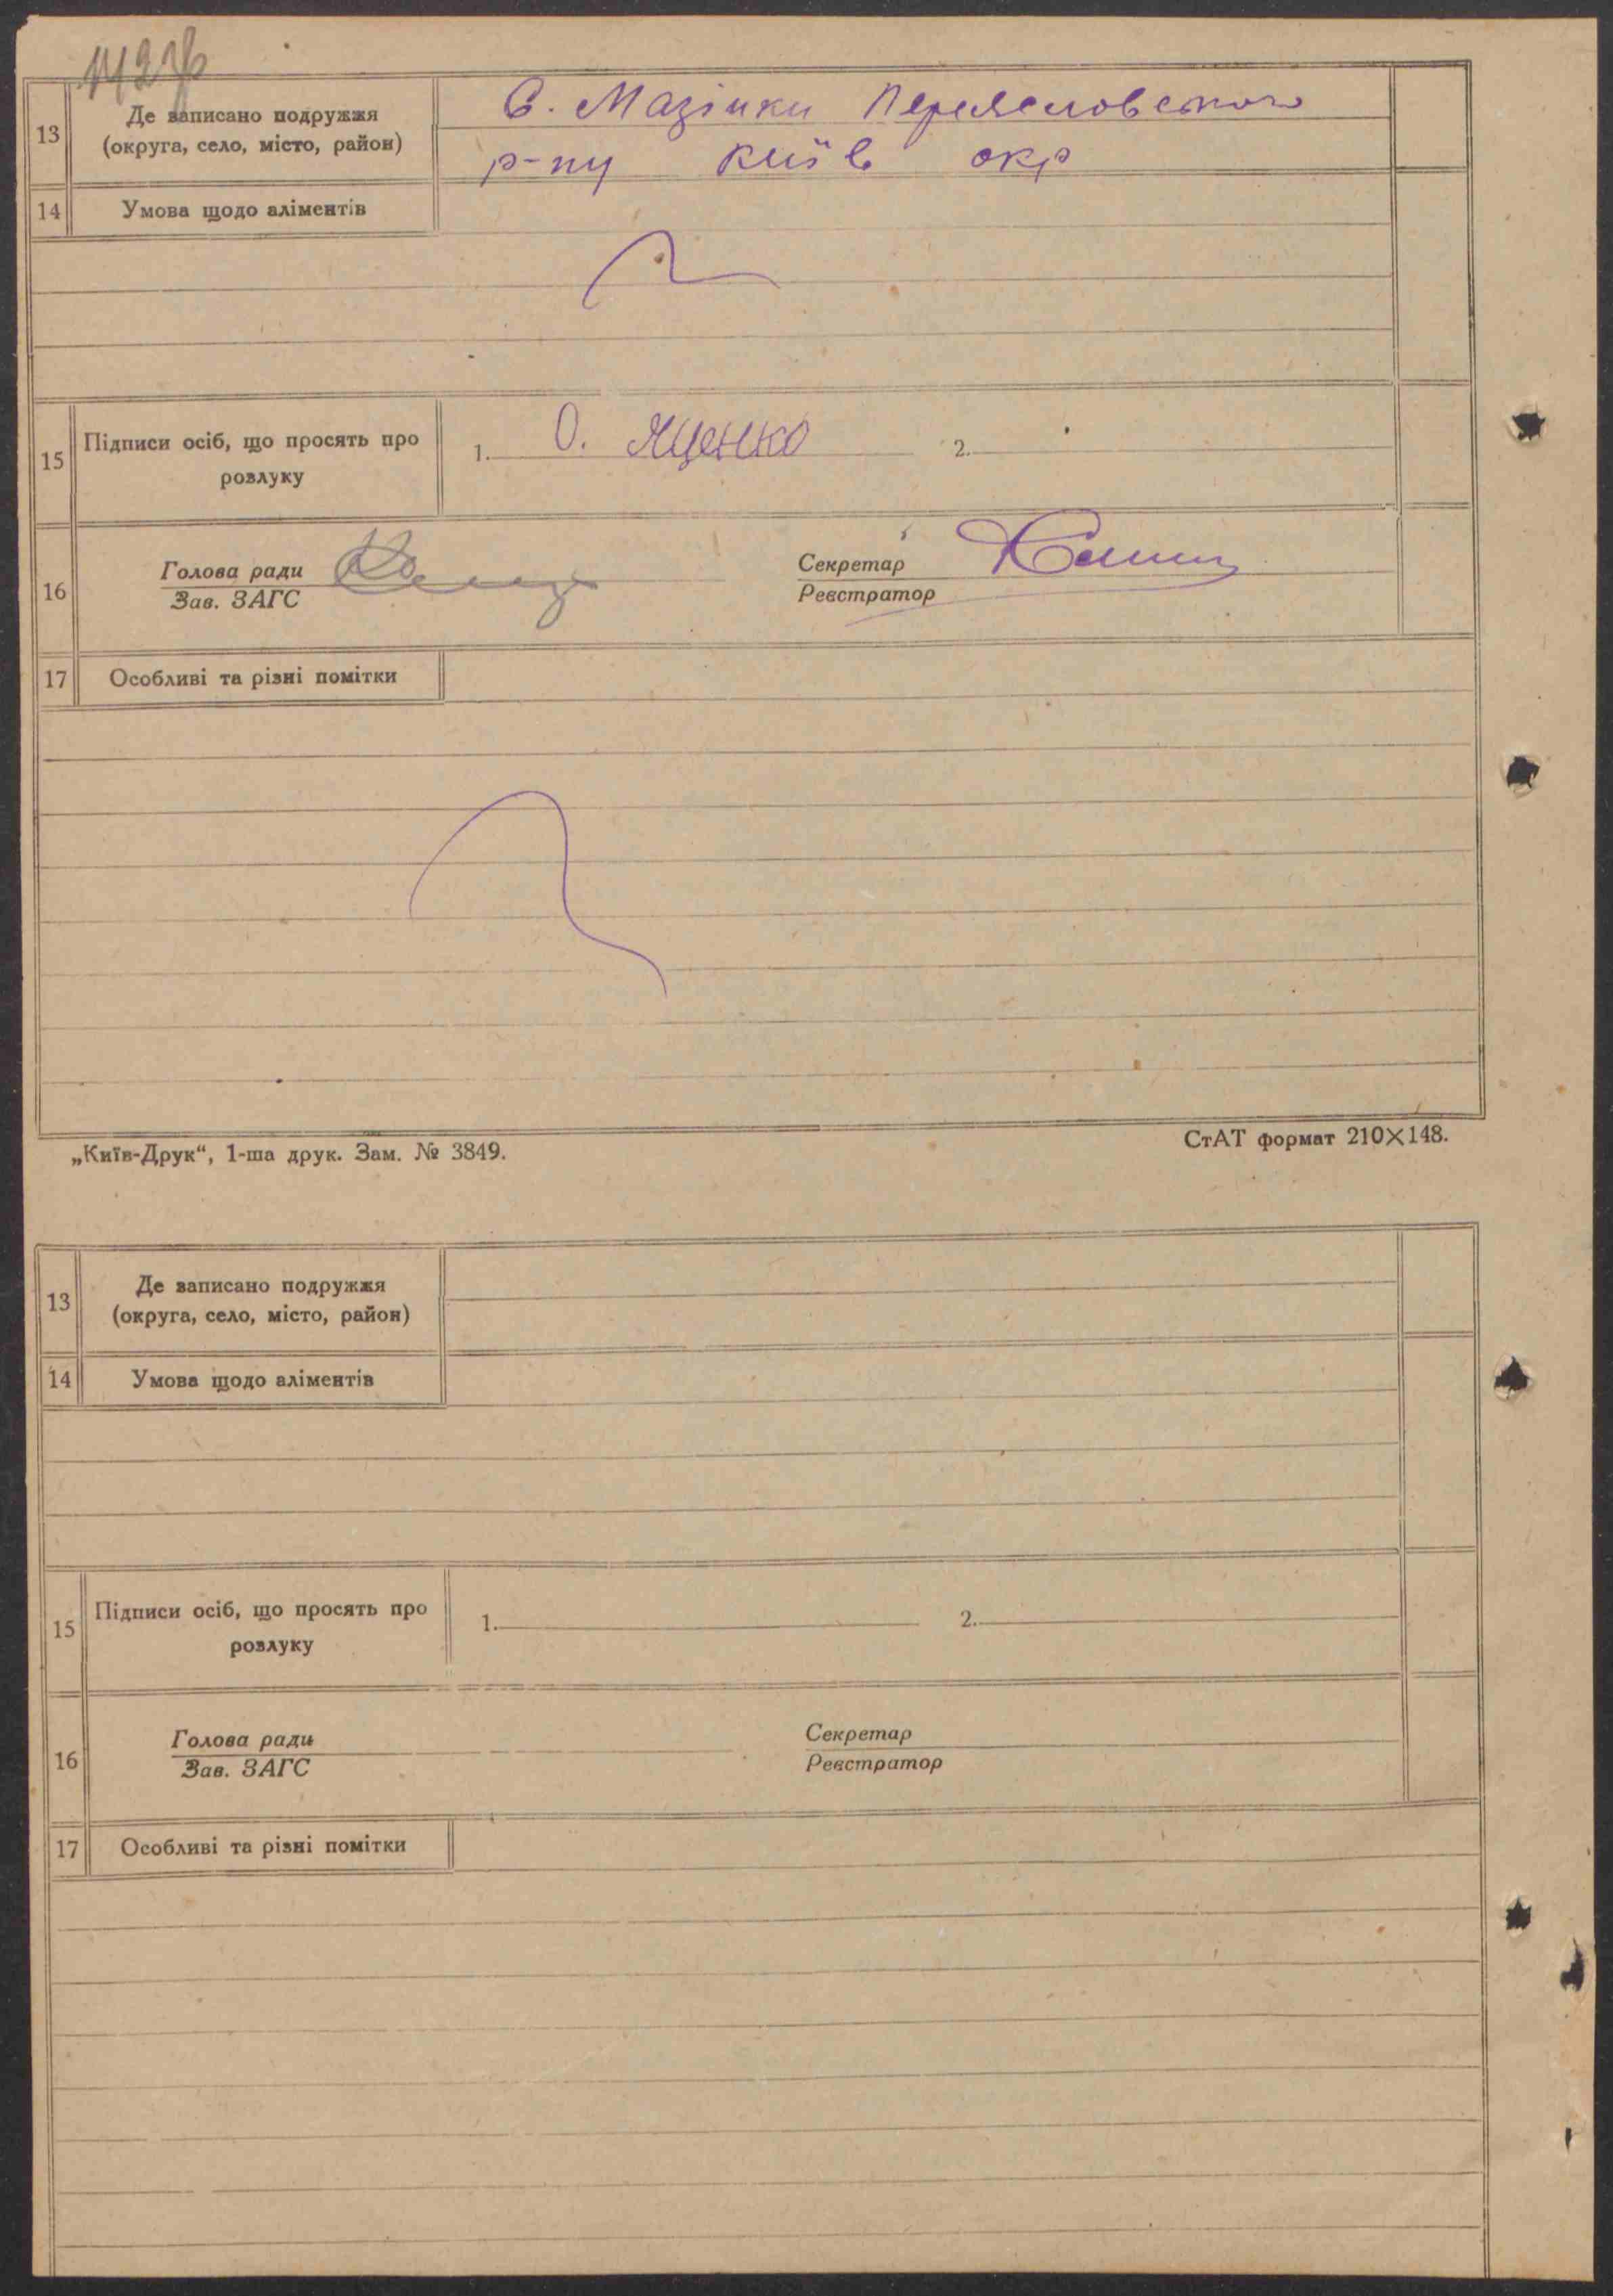 13
Де записано подружжя
(округа, село, місто, район)
С. Мазінки Переяславського
р-ну Київ окр
14
Умова щодо аліментів
15
Підписи осіб, що просять про
розлуку
1. О. Яценко
2.
16
Голова ради
Зав. ЗАГС
Секретар
Реєстратор
17
Особливі та різні помітки
„Київ-Друк“, 1-ша друк. Зам. № 3849.
СтАТ формат 210×148.
13
Де записано подружжя
(округа, село, місто, район)
14
Умова щодо аліментів
15
Підписи осіб, що просять про
розлуку
1.
2.
16
Голова ради
Зав. ЗАГС
Секретар
Реєстратор
17
Особливі та різні помітки